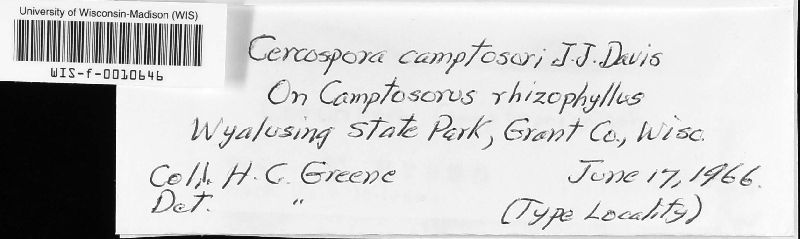 University of Wisconsin-Madison (WIS)
WIS-f-0010646
Cercospora camptosori J.J. Davis
On Camptosorus rhizophyllus
Wyalusing State Park, Grant Co., Wisc.
Coll. H. C. Greene June 17, 1966.
Det. " (Type Locality)